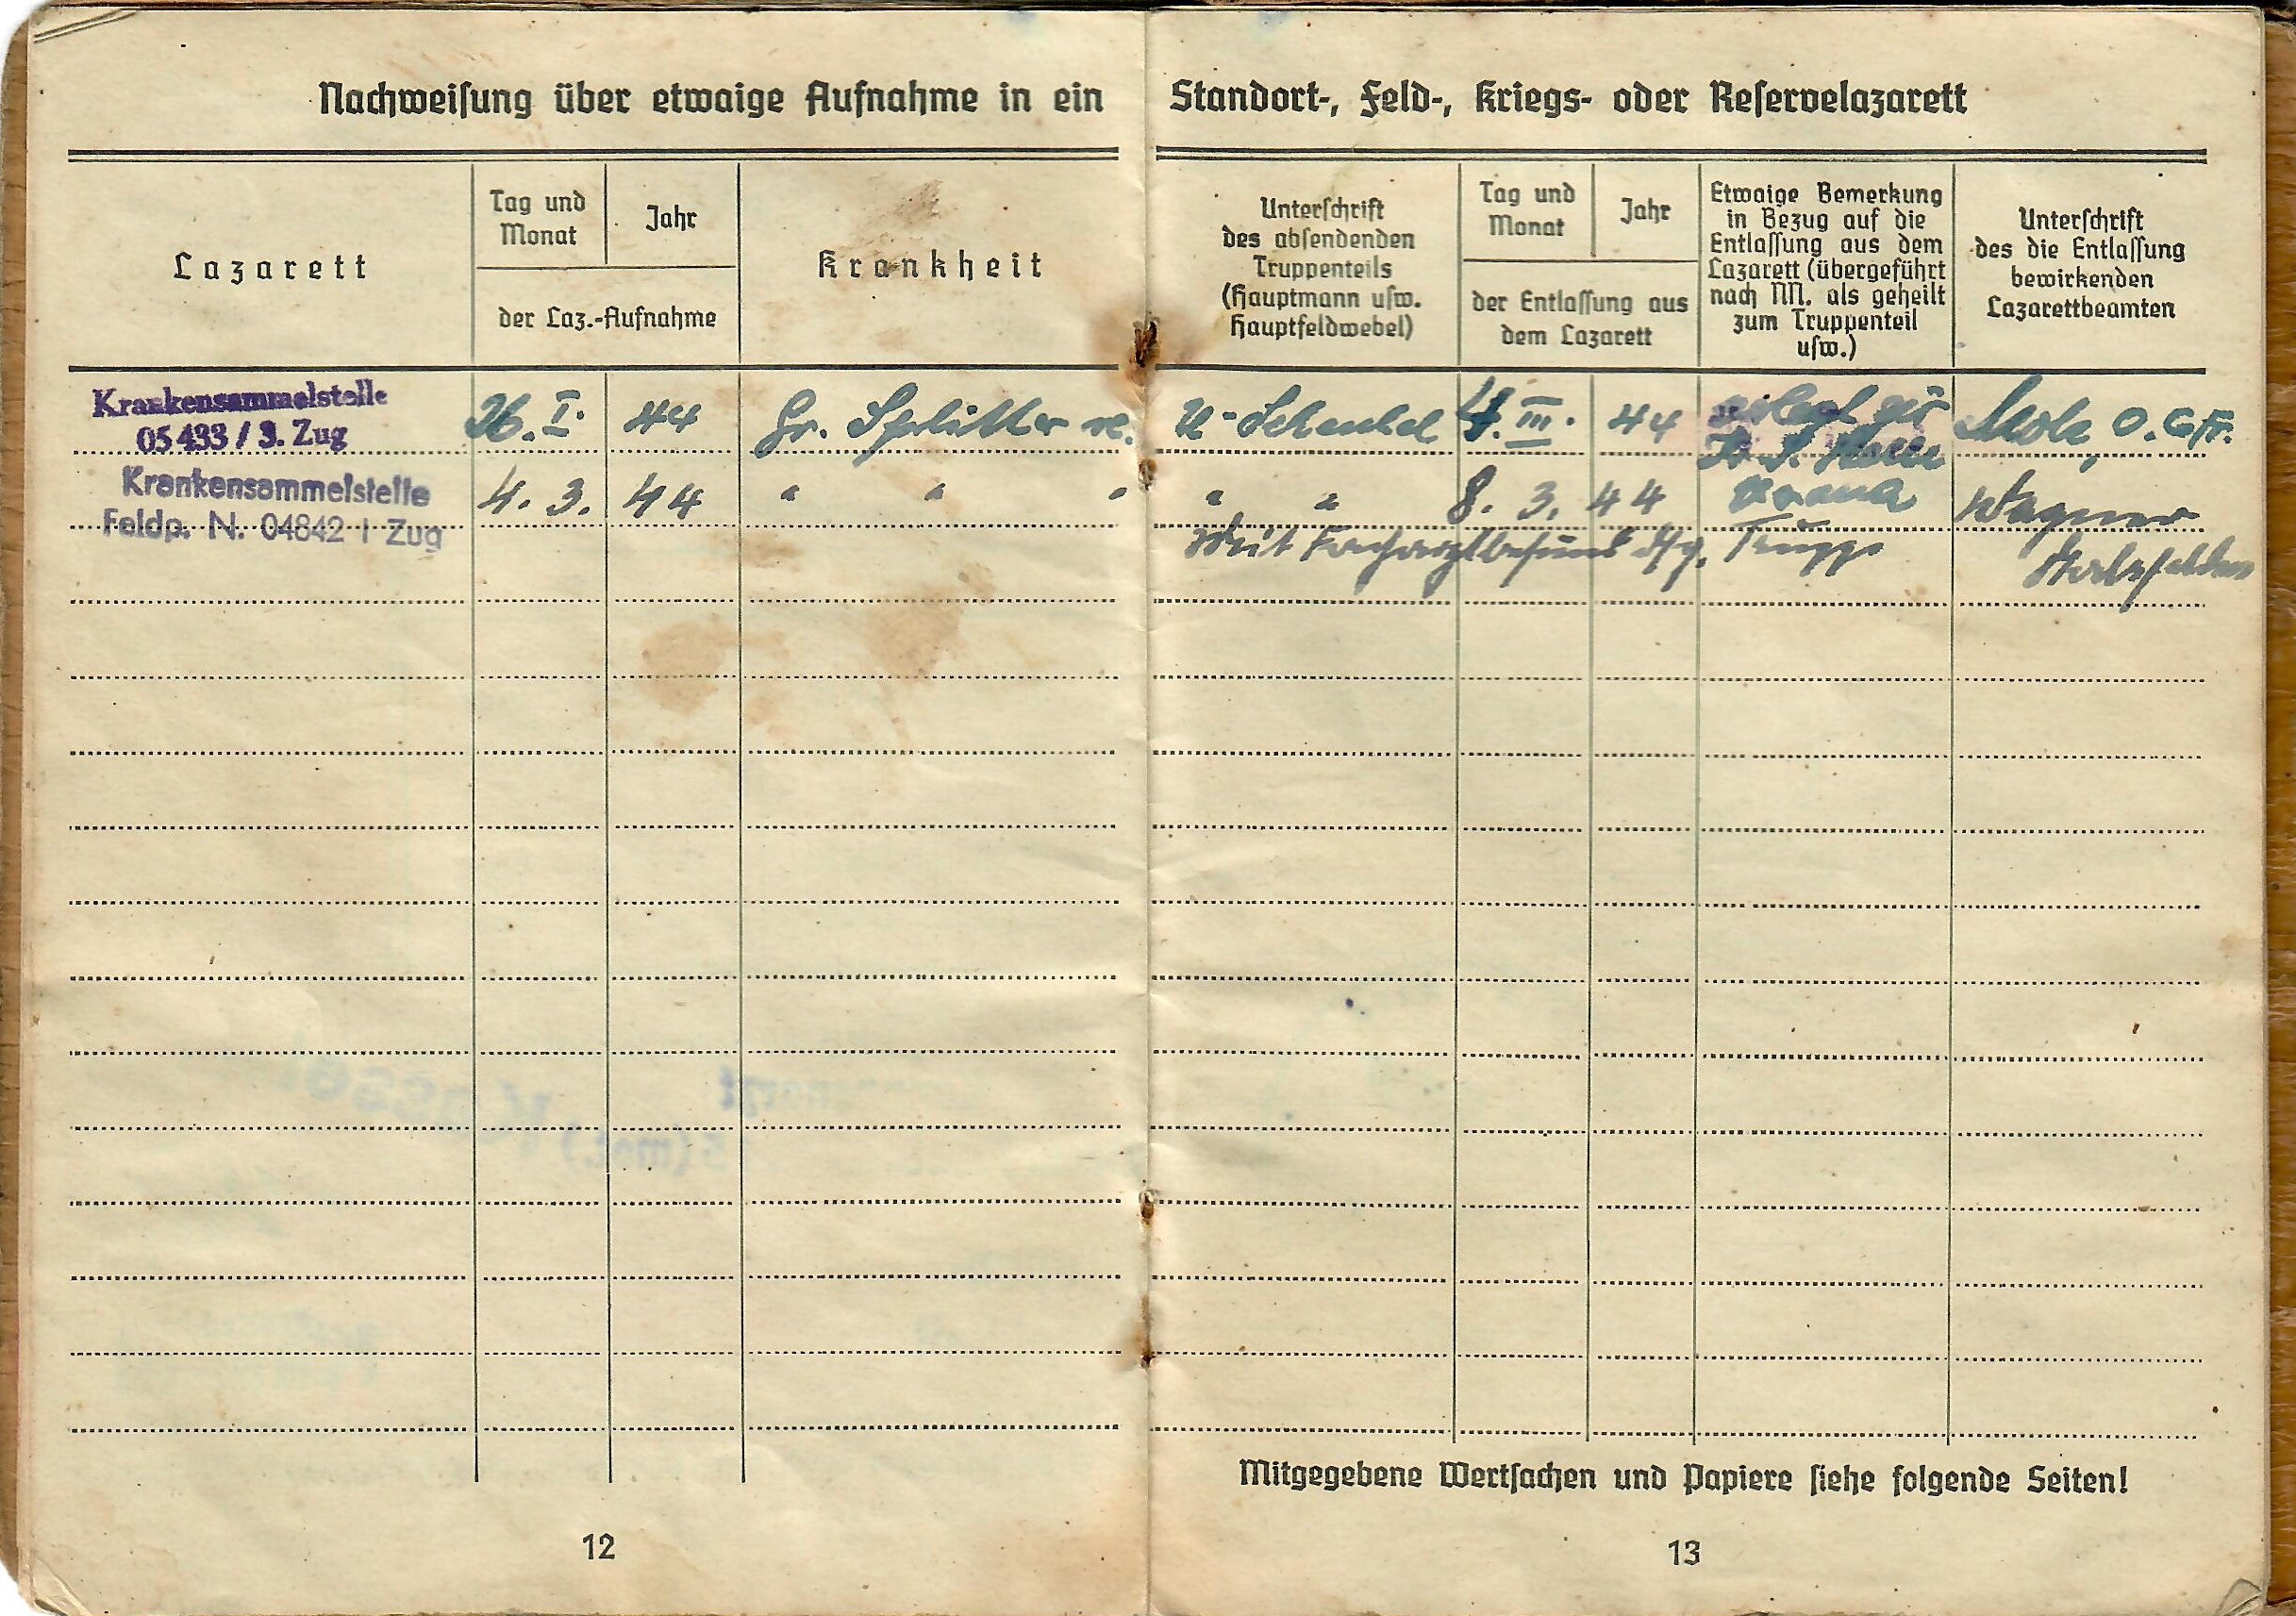 Nachweisung über etwaige Aufnahme in ein Standort-, Feld-, Kriegs- oder Reservelazarett
Lazarett
Tag und
Monat
Jahr
der Laz.-Aufnahme
Krankheit
Unterschrift
des absendenden
Truppenteils
(Hauptmann usw.
Hauptfeldwebel)
Tag und
Monat
Jahr
der Entlassung aus
dem Lazarett
Etwaige Bemerkung
in Bezug auf die
Entlassung aus dem
Lazarett (übergeführt
nach NN. als geheilt
zum Truppenteil
usw.)
Unterschrift
des die Entlassung
bewirkenden
Lazarettbeamten
Krankensammelstelle
05 433 / 3. Zug
26. I. 44 Gr. Splitter re. U-Schenkel 4. III. 44 O. Gfr.
Krankensammelstelle
Feldp. N. 04842 I Zug
4. 3. 44 " " " " " 8. 3. 44 Wagner
Mit Facharztbefund Truppe
Mitgegebene Wertsachen und Papiere siehe folgende Seiten!
12
13